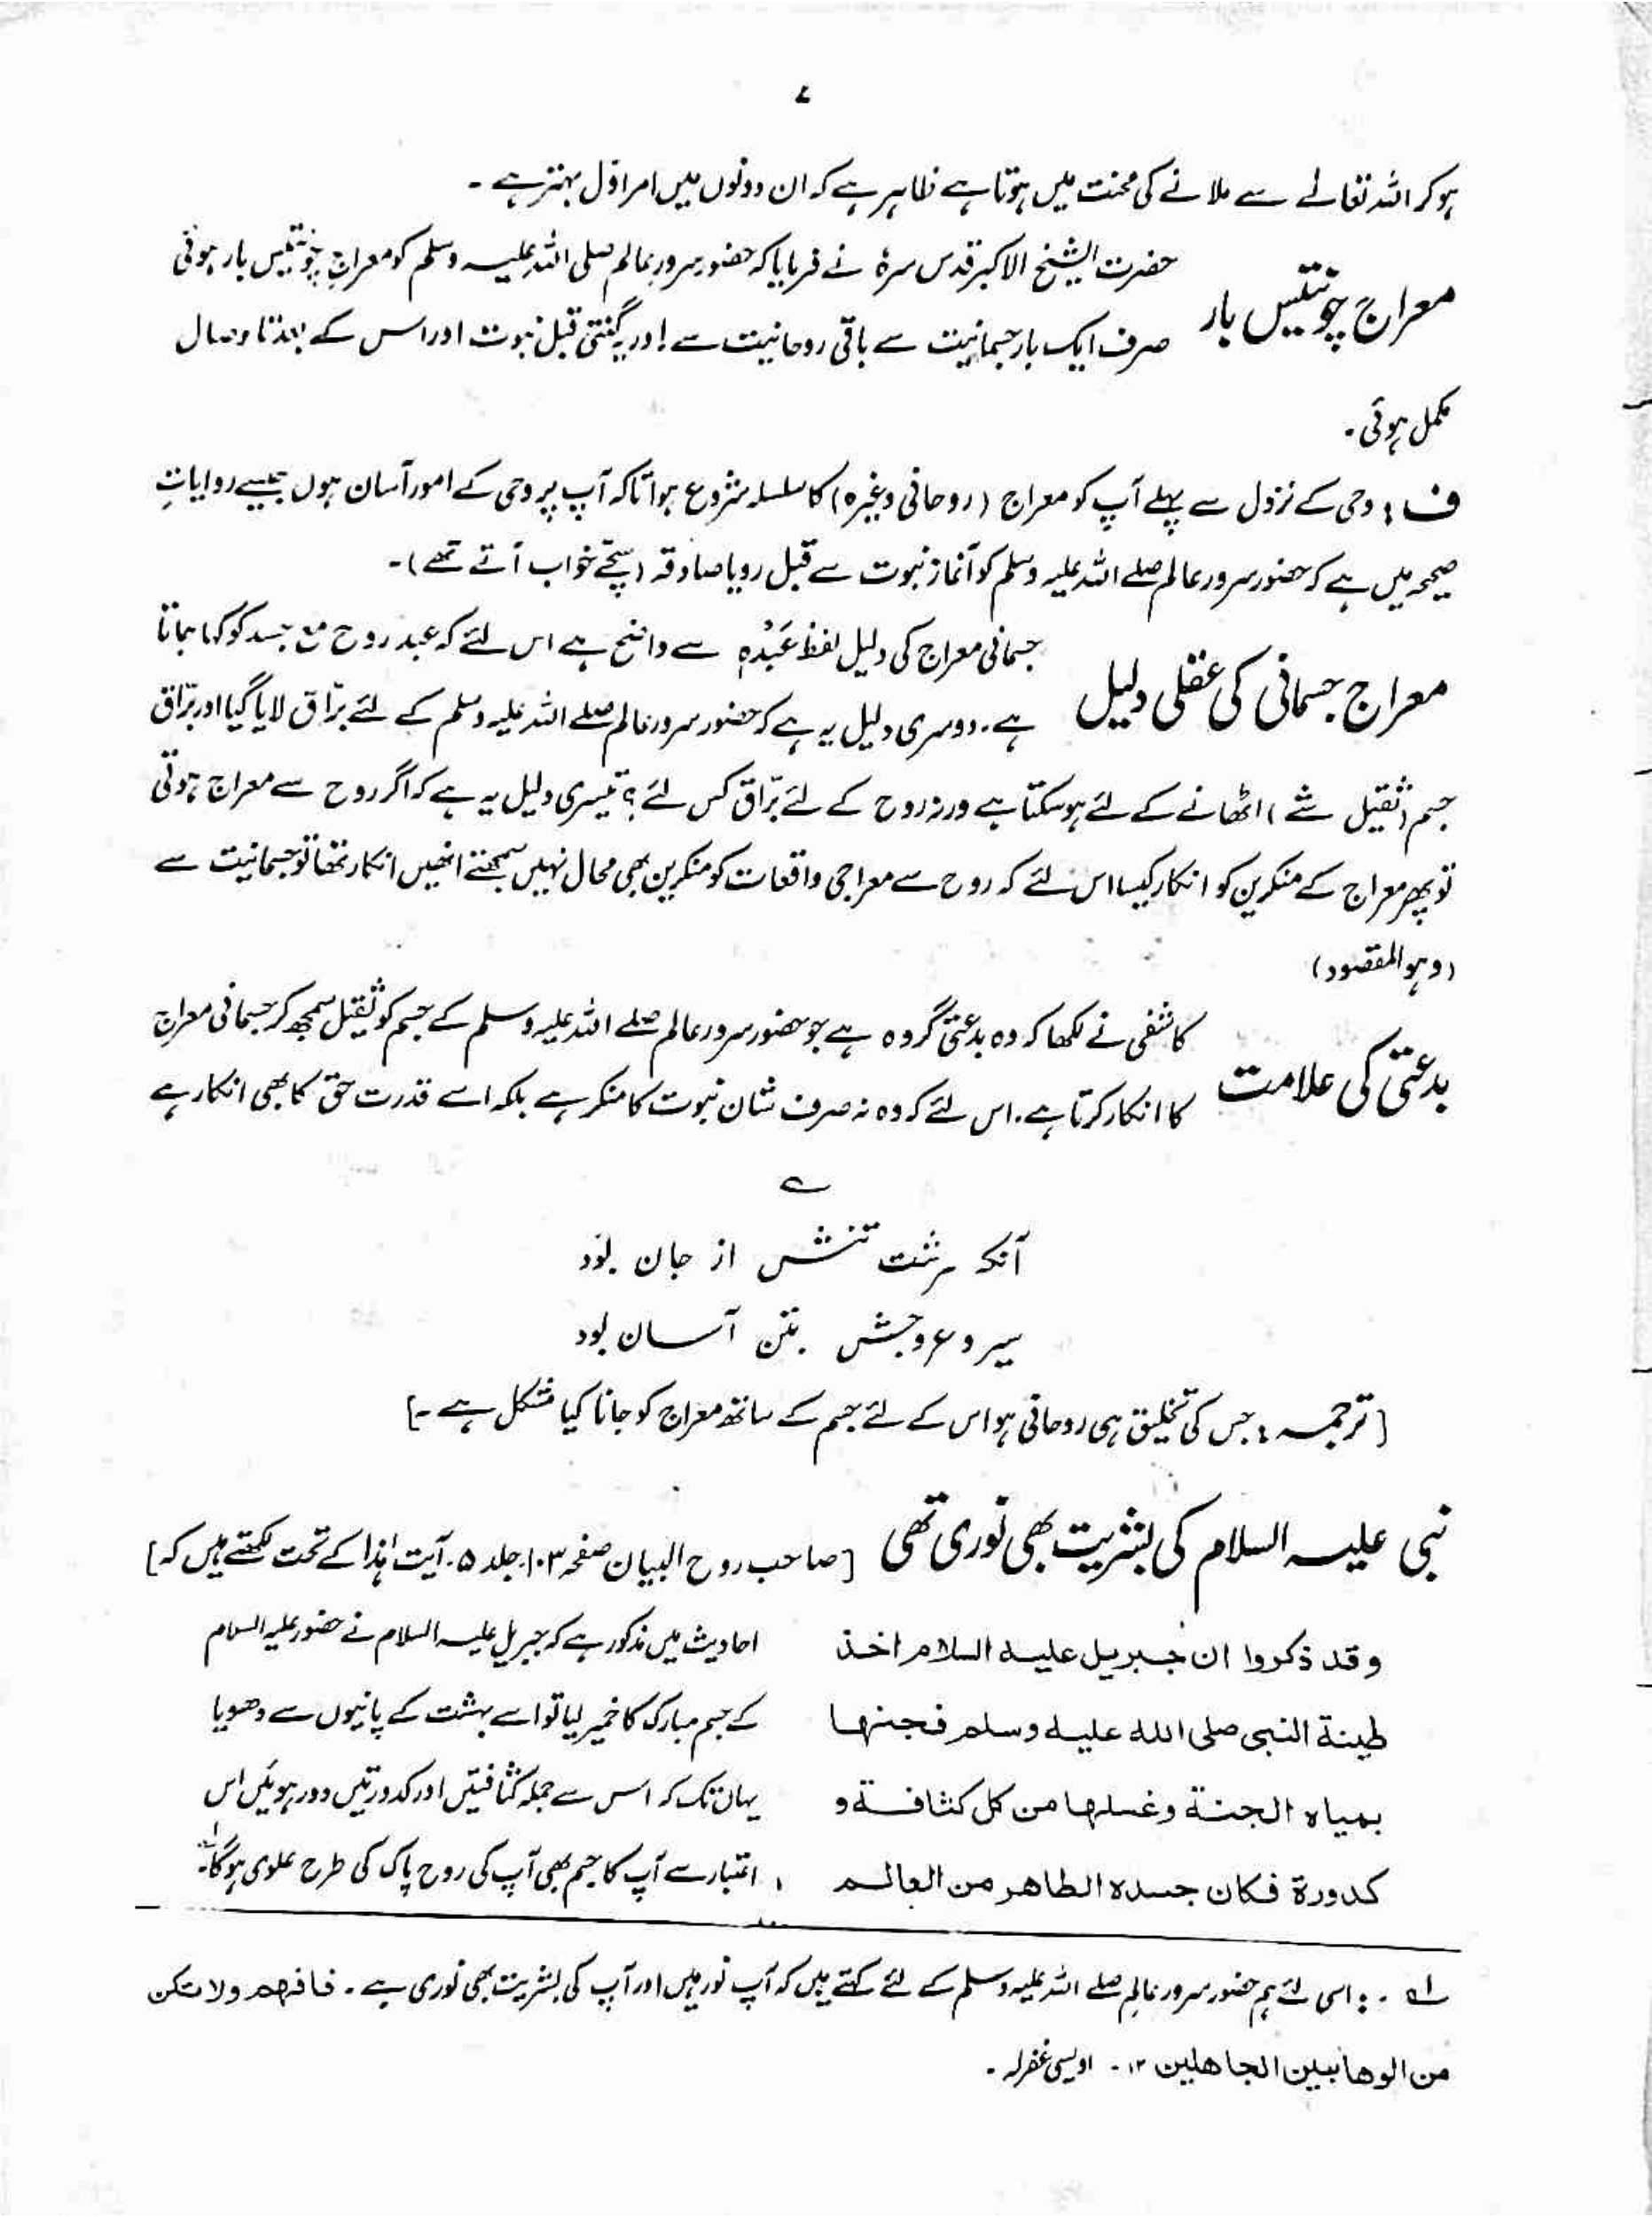 ۷
ہو کر اللہ تعالےٰ سے ملانے کی محنت میں ہوتا ہے ظاہر ہے کہ ان دونوں میں امر اوّل بہتر ہے ۔
معراج چونتیس بار
حضرت الشیخ الاکبر قدس سرہٗ نے فرمایا کہ حضور سرور عالم صلی اللہ علیہ وسلم کو معراج چونتیس بار ہوئی
صرف ایک بار جسمانیت سے باقی روحانیت سے اور یہ گنتی قبل نبوت اور اس کے بعد تا وصال
مکمل ہوئی ۔
ف : وحی کے نزول سے پہلے آپ کو معراج (روحانی وغیرہ) کا سلسلہ شروع ہوا تاکہ آپ پر وحی کے امور آسان ہوں جیسے روایاتِ
صحیحہ میں ہے کہ حضور سرور عالم صلے اللہ علیہ وسلم کو آغاز نبوت سے قبل رویا صادقہ (سچے خواب آتے تھے) ۔
معراج جسمانی کی عقلی دلیل
جسمانی معراج کی دلیل لفظ عَبْدُہٖ سے واضح ہے اس لئے کہ عبد روح مع جسد کو کہا جاتا
ہے ۔ دوسری دلیل یہ ہے کہ حضور سرور عالم صلے اللہ علیہ وسلم کے لئے برّاق لایا گیا اور برّاق
جسم (ثقیل شے) اٹھانے کے لئے ہو سکتا ہے ورنہ روح کے لئے برّاق کس لئے ؟ تیسری دلیل یہ ہے کہ اگر روح سے معراج ہوتی
تو پھر معراج کے منکرین کو انکار کیسا اس لئے کہ روح سے معراجی واقعات کو منکرین بھی محال نہیں سمجھتے انھیں انکار تھا تو جسمانیت سے
(وہو المقصود)
بدعتی کی علامت
کاشفی نے لکھا کہ وہ بدعتی گروہ ہے جو حضور سرور عالم صلے اللہ علیہ وسلم کے جسم کو ثقیل سمجھ کر جسمانی معراج
کا انکار کرتا ہے ۔ اس لئے کہ وہ نہ صرف شان نبوت کا منکر ہے بلکہ اسے قدرت حق کا بھی انکار ہے
؎
آنکہ سرشت تنش از جان بود
سیر و عروجش بتن آسان بود
[ ترجمہ : جس کی تخلیق ہی روحانی ہو اس کے لئے جسم کے ساتھ معراج کو جانا کیا مشکل ہے ۔ ]
نبی علیہ السلام کی بشریت بھی نوری تھی [ صاحب روح البیان صفحہ ۱۰۳ جلد ۵ ۔ آیت ہٰذا کے تحت لکھتے ہیں کہ ]
وقد ذکروا ان جبریل علیہ السلام اخذ
طینۃ النبی صلی اللہ علیہ وسلم فعجنہا
بمیاہ الجنۃ وغسلہا من کل کثافۃ و
کدورۃ فکان جسدہ الطاھر من العالم
احادیث میں مذکور ہے کہ جبریل علیہ السلام نے حضور علیہ السلام
کے جسم مبارک کا خمیر لیا تو اسے بہشت کے پانیوں سے دھویا
یہاں تک کہ اس سے جملہ کثافتیں اور کدورتیں دور ہوئیں اس
اعتبار سے آپ کا جسم بھی آپ کی روح پاک کی طرح علوی ہوگا ۔
لہ ۔ : اسی لئے ہم حضور سرور عالم صلے اللہ علیہ وسلم کے لئے کہتے ہیں کہ آپ نور ہیں اور آپ کی بشریت بھی نوری ہے ۔ فافہم ولا تکن
من الوھابیین الجاھلین ۱۲ ۔ اویسی غفرلہ ۔